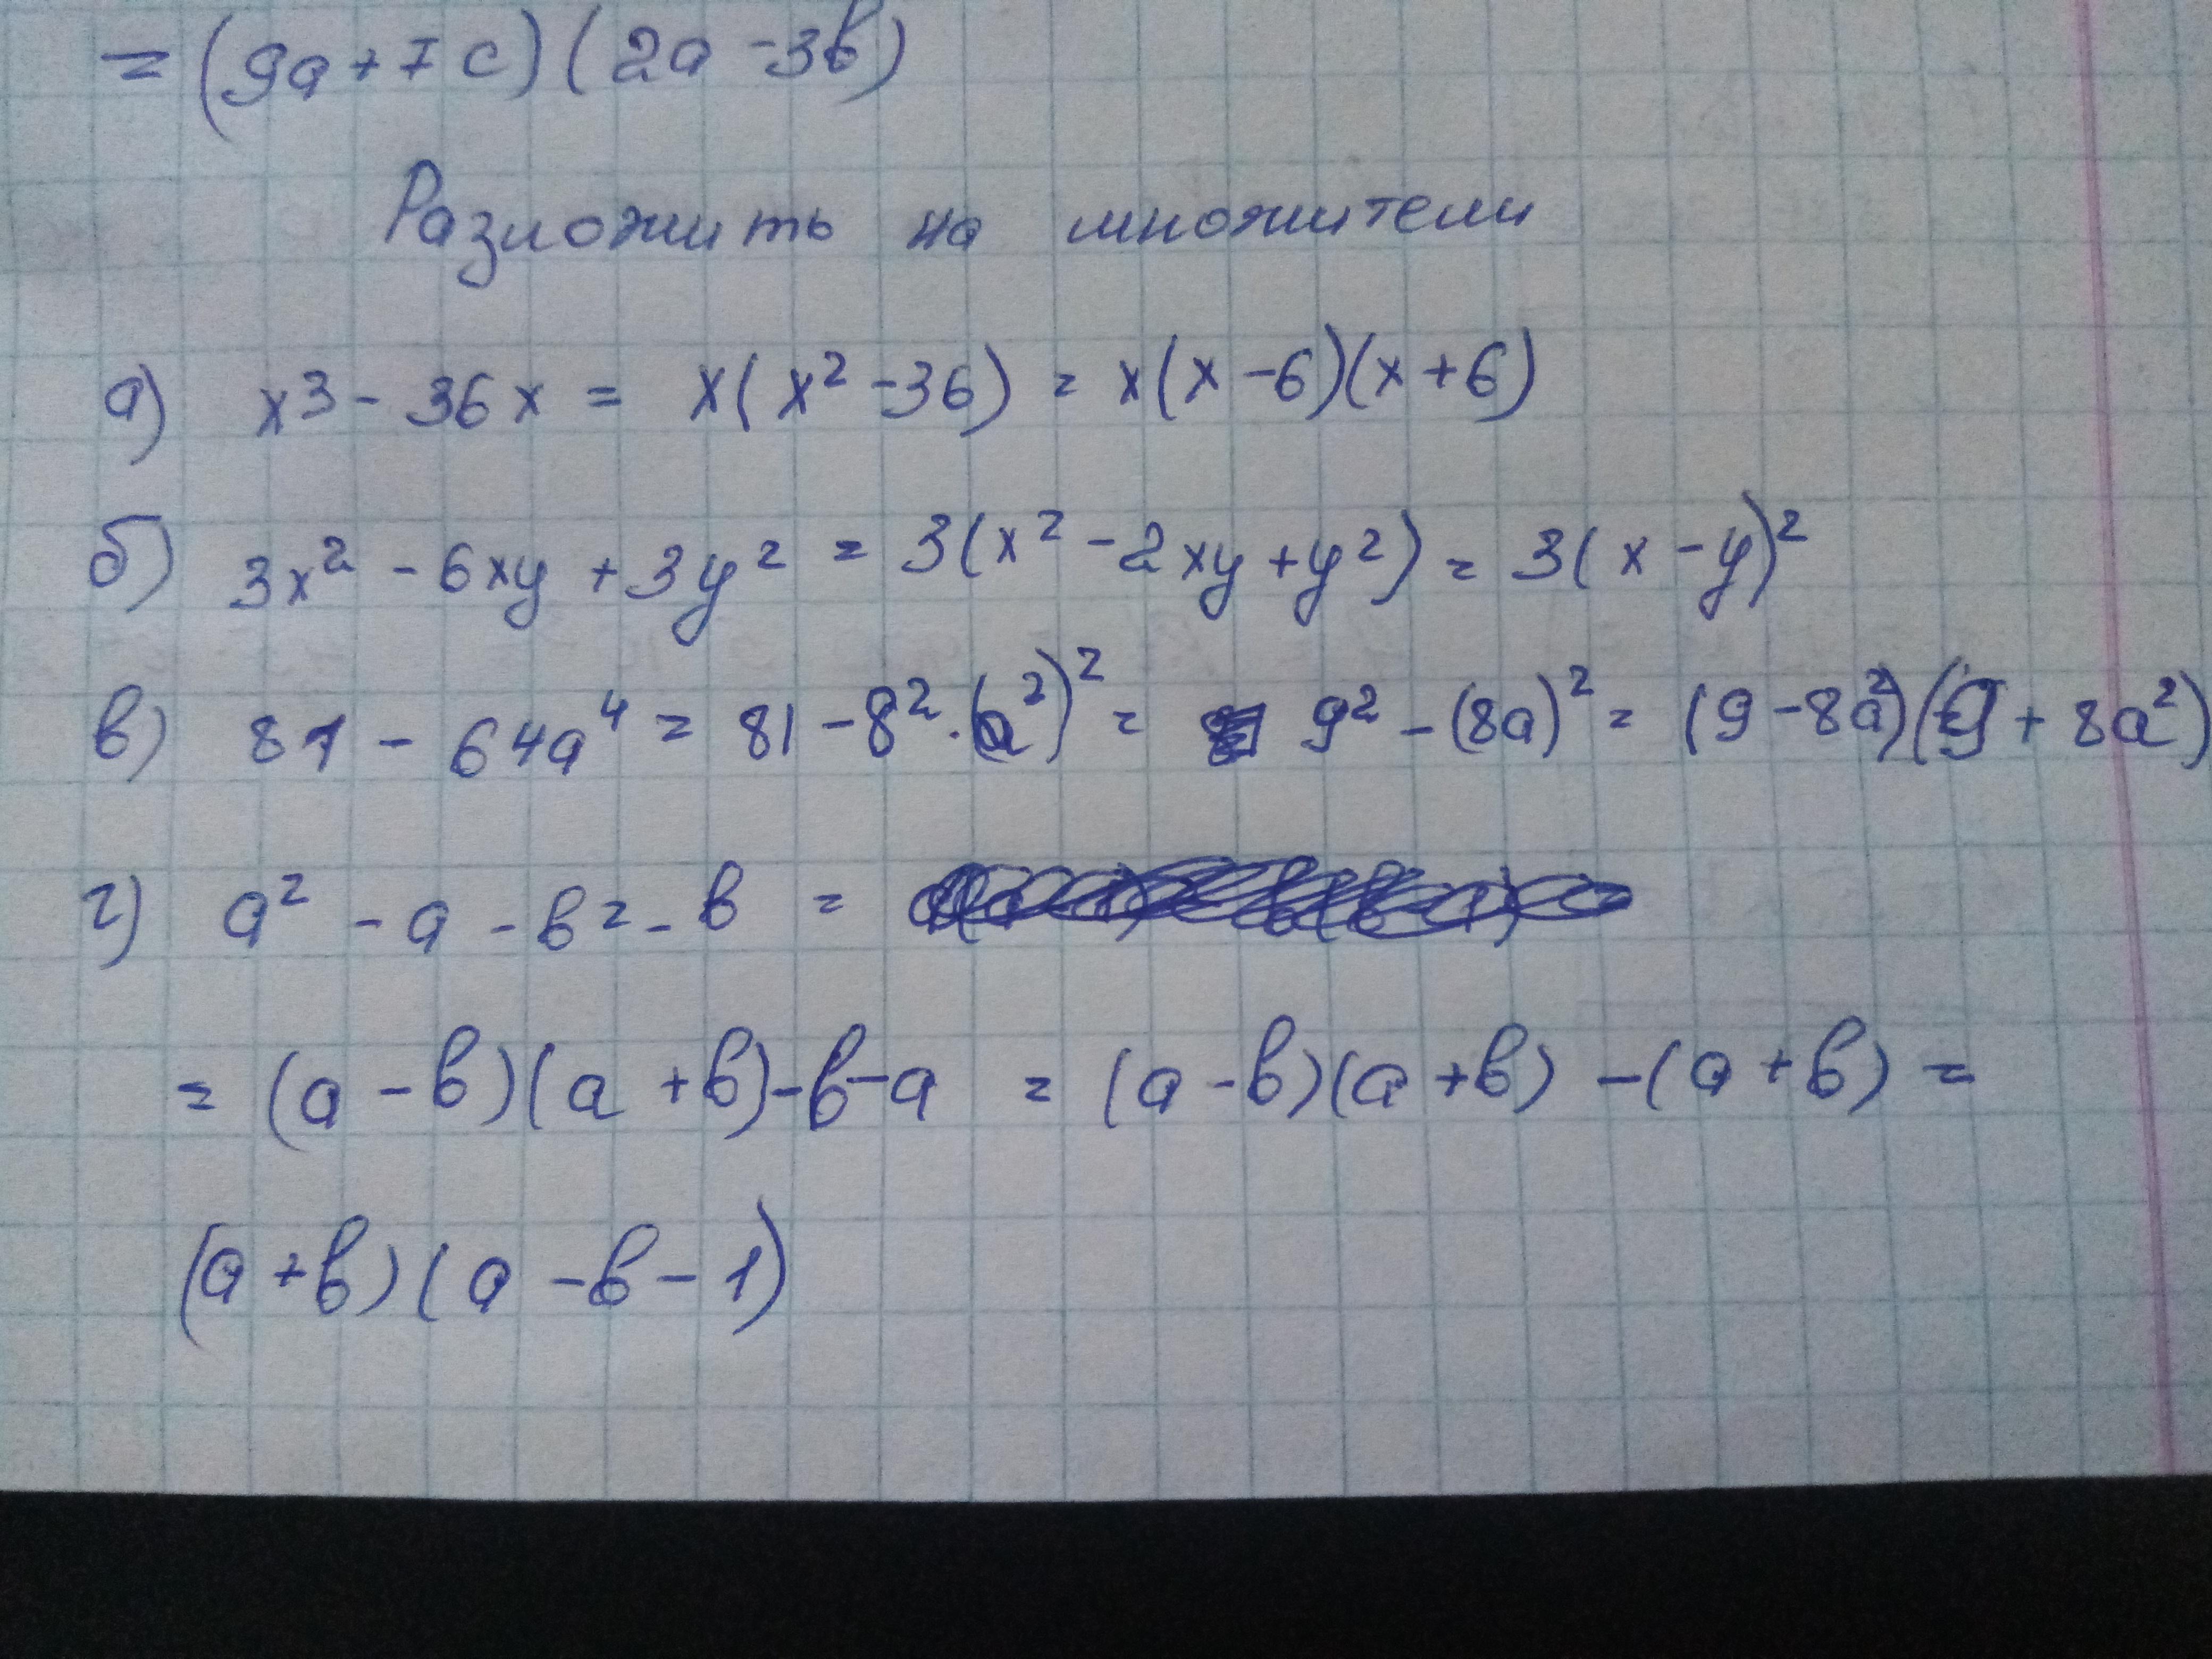 = (9a + 7c)(2a - 3b)
Разложить на множители
а) x³ - 36x = x(x² - 36) = x(x - 6)(x + 6)
б) 3x² - 6xy + 3y² = 3(x² - 2xy + y²) = 3(x - y)²
в) 81 - 64a⁴ = 81 - 8² · (a²)² = 9² - (8a)² = (9 - 8a²)(9 + 8a²)
г) a² - a - b² - b =
= (a - b)(a + b) - b - a = (a - b)(a + b) - (a + b) =
(a + b)(a - b - 1)